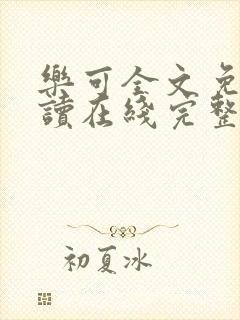 樂可全文免
讀在綫完整
初夏冰